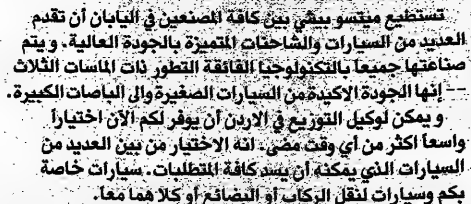 تستطيع ميتسو بيشي بين كافة المصنعين في اليابان أن تقدم
العديد من السيارات والشاحنات المتميزة بالجودة العالية. و يتم
صناعتها جميعاً بالتكنولوجيا الفائقة التطور ذات الماسات الثلاث
-- إنها الجودة الاكيدة من السيارات الصغيرة والى الباصات الكبيرة.
و يمكن لوكيل التوزيع في الاردن أن يوفر لكم الآن اختياراً
واسعاً اكثر من أي وقت مضى. انه الاختيار من بين العديد من
السيارات الذي يمكنه أن يسد كافة المتطلبات. سيارات خاصة
بكم وسيارات لنقل الركاب أو البضائع أو كلا هما معاً.